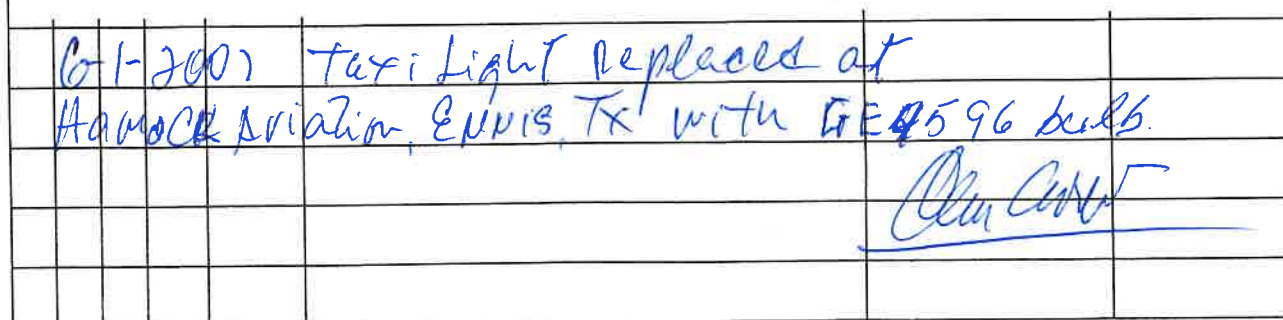 6-1-2007 Taxi Light Replaced at
Hamock Aviation, ENNIS, TX with GE 4596 bulb.